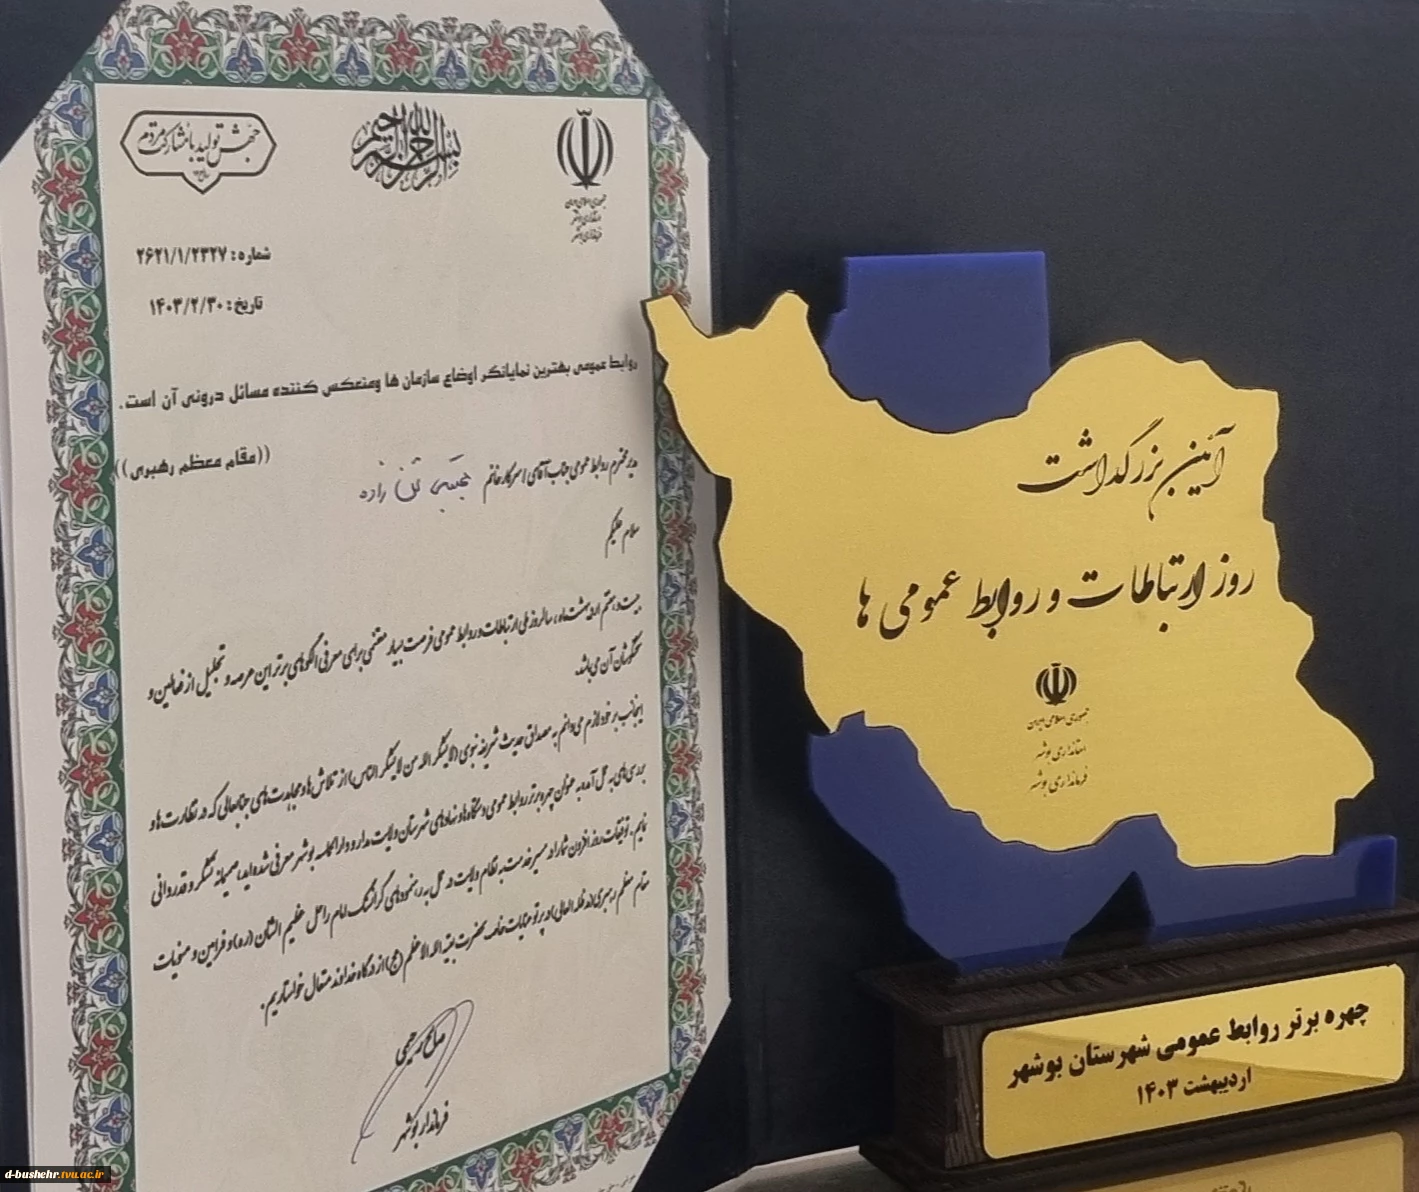 جهش تولید با مشارکت مردم
بسم الله الرحمن الرحیم
جمهوری اسلامی ایران
استانداری بوشهر
فرمانداری بوشهر
شماره : ۲۶۲۱/۱/۲۳۲۷
تاریخ : ۱۴۰۳/۲/۳۰
روابط عمومی بهترین نمایانگر اوضاع سازمان ها ومنعکس کننده مسائل درونی آن است .
((مقام معظم رهبری))
مدیر محترم روابط عمومی جناب آقای / سرکار خانم
سلام علیکم
بیست و هفتم اردیبهشت ماه ، سالروز ملی ارتباطات و روابط عمومی فرصت بسیار مغتنمی برای معرفی الگوهای برتر این عرصه و تجلیل از فعالین و
تلاشگران آن می باشد.
اینجانب بر خود لازم می دانم به مصداق حدیث شریفه نبوی (لایشکر الله من لایشکر الناس) از تلاش ها و مجاهدت های جنابعالی که در نظارت ها و
بررسی های به عمل آمده به عنوان چهره برتر روابط عمومی دستگاه ها و نهادهای شهرستان ولایت مدار و دارالحکمه بوشهر معرفی شده اید، صمیمانه تشکر و قدردانی
نمایم . توفیقات روز افزون شما را در مسیر خدمت به نظام ولایت در عمل به رهنمودهای گرانسنگ امام راحل عظیم الشان (ره) و فرامین و منویات
مقام معظم رهبری (مد ظله العالی) در پرتو عنایات خاصه حضرت بقیة الله الاعظم (عج) از درگاه خداوند متعال خواستاریم .
صالح رحیمی
فرماندار بوشهر
آئین بزرگداشت
روز ارتباطات و روابط عمومی ها
جمهوری اسلامی ایران
استانداری بوشهر
فرمانداری بوشهر
چهره برتر روابط عمومی شهرستان بوشهر
اردیبهشت ۱۴۰۳
d-bushehr.tvu.ac.ir